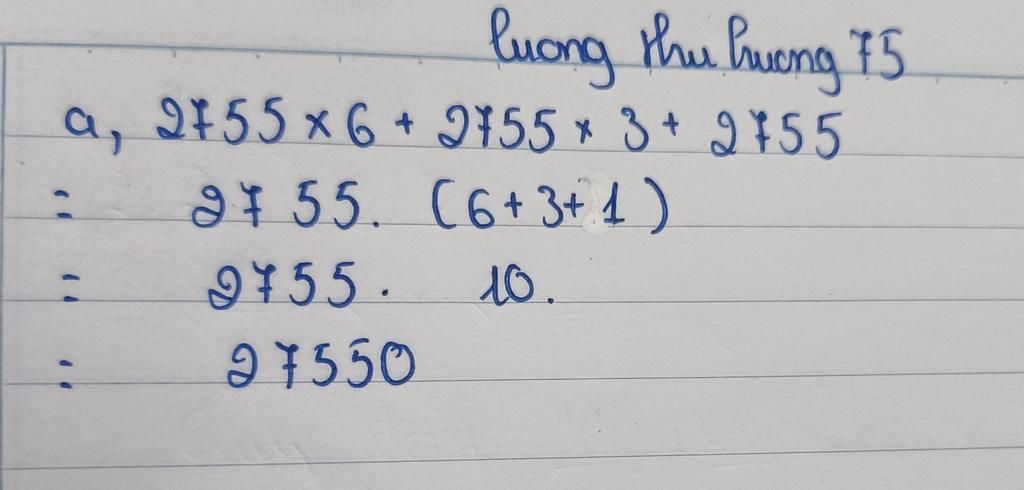 Lương thu hương 75
a, 2755 × 6 + 2755 × 3 + 2755
= 2755. (6 + 3 + 1)
= 2755. 10.
= 27550